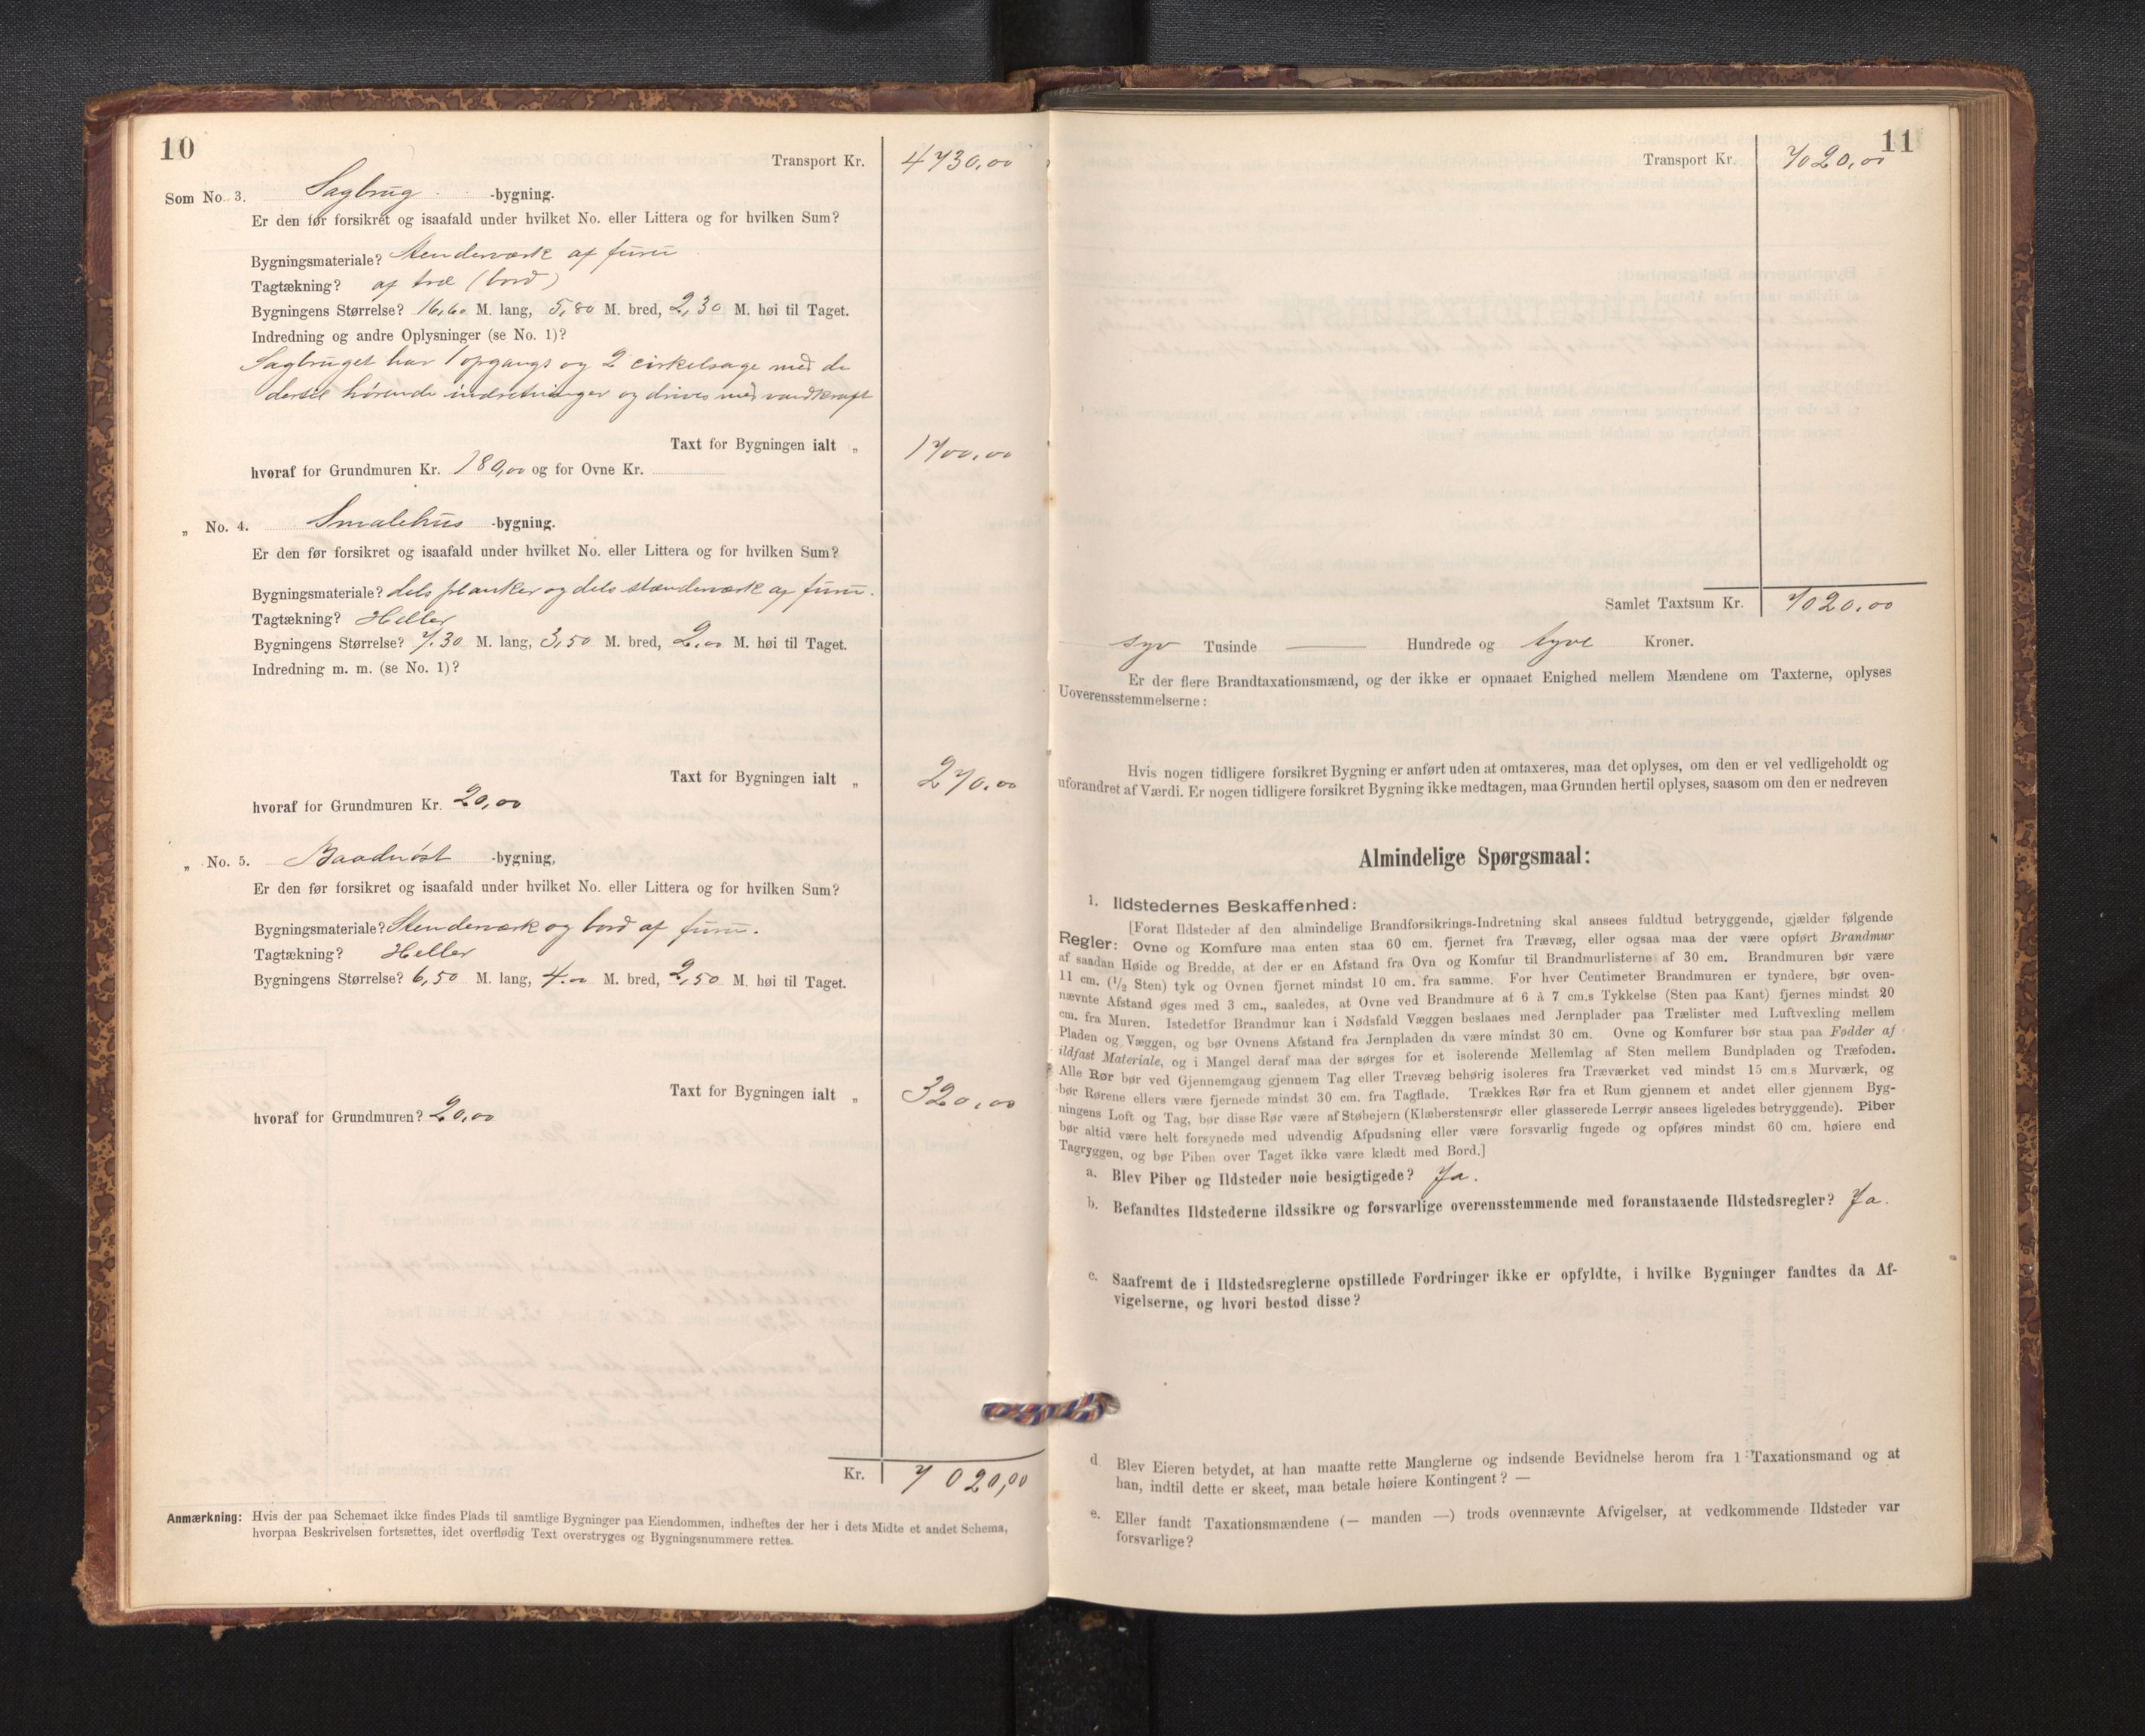 10
Transport Kr. 4730,00
Som No. 3. Sagbrug -bygning.
Er den før forsikret og isaafald under hvilket No. eller Littera og for hvilken Sum?
Bygningsmateriale? Stenderværk af furu
Tagtækning? af træ (bord)
Bygningens Størrelse? 16,60 M. lang, 5,80 M. bred, 2,30 M. høi til Taget.
Indredning og andre Oplysninger (se No. 1)?
Sagbruget har 1 opgangs og 2 cirkelsage med de
dertil hørende indretninger og drives med vandkraft
Taxt for Bygningen ialt „ 1700,00
hvoraf for Grundmuren Kr. 180,00 og for Ovne Kr.
„ No. 4. Smalehus -bygning.
Er den før forsikret og isaafald under hvilket No. eller Littera og for hvilken Sum?
Bygningsmateriale? dels planker og dels stænderværk af furu.
Tagtækning? Heller
Bygningens Størrelse? 7.30 M. lang, 3,50 M. bred, 2,00 M. høi til Taget.
Indredning m. m. (se No. 1)?
Taxt for Bygningen ialt „ 270,00
hvoraf for Grundmuren Kr. 20,00
„ No. 5. Baadnøst -bygning,
Er den før forsikret og isaafald under hvilket No. eller Littera og for hvilken Sum?
Bygningsmateriale? Stenderværk og bord af furu.
Tagtækning? Heller
Bygningens Størrelse? 6,50 M. lang, 4.00 M. bred, 2,50 M. høi til Taget.
Taxt for Bygningen ialt „ 320,00
hvoraf for Grundmuren? 20,00
Kr. 7020,00
Anmærkning: Hvis der paa Schemaet ikke findes Plads til samtlige Bygninger paa Eiendommen, indheftes der her i dets Midte et andet Schema,
hvorpaa Beskrivelsen fortsættes, idet overflødig Text overstryges og Bygningsnummere rettes.
11
Transport Kr. 7020,00
Samlet Taxtsum Kr. 7020,00
syv Tusinde — Hundrede og tyve Kroner.
Er der flere Brandtaxationsmænd, og der ikke er opnaaet Enighed mellem Mændene om Taxterne, oplyses
Uoverensstemmelserne:
Hvis nogen tidligere forsikret Bygning er anført uden at omtaxeres, maa det oplyses, om den er vel vedligeholdt og
uforandret af Værdi. Er nogen tidligere forsikret Bygning ikke medtagen, maa Grunden hertil oplyses, saasom om den er nedreven
Almindelige Spørgsmaal:
1. Ildstedernes Beskaffenhed:
[Forat Ildsteder af den almindelige Brandforsikrings-Indretning skal ansees fuldtud betryggende, gjælder følgende
Regler: Ovne og Komfure maa enten staa 60 cm. fjernet fra Trævæg, eller ogsaa maa der være opført Brandmur
af saadan Høide og Bredde, at der er en Afstand fra Ovn og Komfur til Brandmurlisterne af 30 cm. Brandmuren bør være
11 cm. (1/2 Sten) tyk og Ovnen fjernet mindst 10 cm. fra samme. For hver Centimeter Brandmuren er tyndere, bør oven-
nævnte Afstand øges med 3 cm., saaledes, at Ovne ved Brandmure af 6 à 7 cm.s Tykkelse (Sten paa Kant) fjernes mindst 20
cm. fra Muren. Istedetfor Brandmur kan i Nødsfald Væggen beslaaes med Jernplader paa Trælister med Luftvexling mellem
Pladen og Væggen, og bør Ovnens Afstand fra Jernpladen da være mindst 30 cm. Ovne og Komfurer bør staa paa Fødder af
ildfast Materiale, og i Mangel deraf maa der sørges for et isolerende Mellemlag af Sten mellem Bundpladen og Træfoden.
Alle Rør bør ved Gjennemgang gjennem Tag eller Trævæg behørig isoleres fra Træværket ved mindst 15 cm.s Murværk, og
bør Rørene ellers være fjernede mindst 30 cm. fra Tagflade. Trækkes Rør fra et Rum gjennem et andet eller gjennem Byg-
ningens Loft og Tag, bør disse Rør være af Støbejern (Klæberstensrør eller glasserede Lerrør ansees ligeledes betryggende). Piber
bør altid være helt forsynede med udvendig Afpudsning eller være forsvarlig fugede og opføres mindst 60 cm. høiere end
Tagryggen, og bør Piben over Taget ikke være klædt med Bord.]
a. Blev Piber og Ildsteder nøie besigtigede? Ja.
b. Befandtes Ildstederne ildssikre og forsvarlige overensstemmende med foranstaaende Ildstedsregler? Ja.
c. Saafremt de i Ildstedsreglerne opstillede Fordringer ikke er opfyldte, i hvilke Bygninger fandtes da Af-
vigelserne, og hvori bestod disse?
d. Blev Eieren betydet, at han maatte rette Manglerne og indsende Bevidnelse herom fra 1 Taxationsmand og at
han, indtil dette er skeet, maa betale høiere Kontingent? —
e. Eller fandt Taxationsmændene (— manden —) trods ovennævnte Afvigelser, at vedkommende Ildsteder var
forsvarlige?